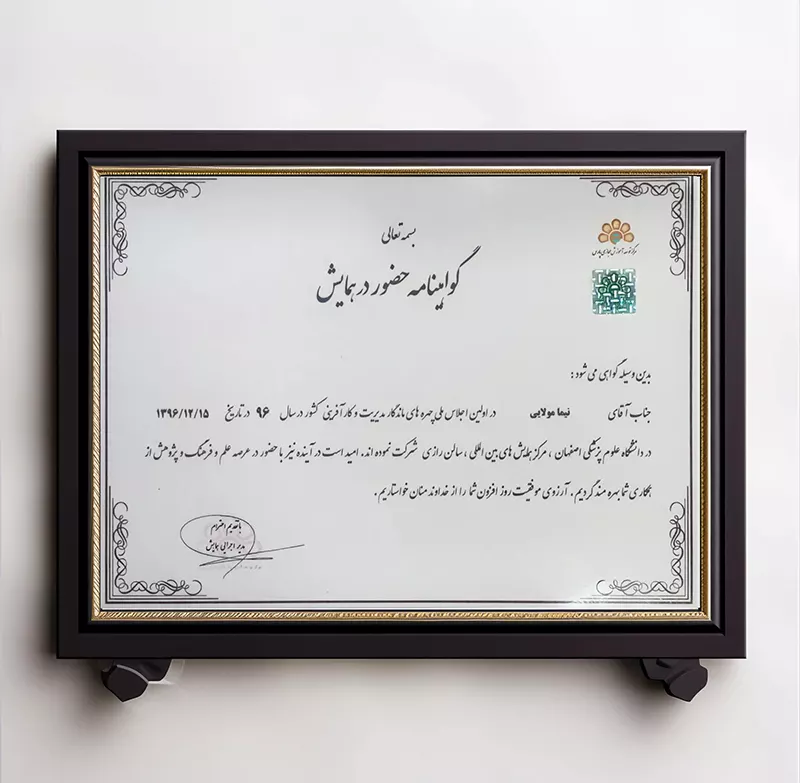 بسمه تعالی
گواهینامه حضور در همایش
مرکز توسعه آموزش مجازی پارس
بدین وسیله گواهی می شود :
جناب آقای نیما مولایی در اولین اجلاس ملی چهره های ماندگار مدیریت و کارآفرینی کشور در سال ۹۶ در تاریخ ۱۳۹۶/۱۲/۱۵
در دانشگاه علوم پزشکی اصفهان ، مرکز همایش های بین المللی ، سالن رازی شرکت نموده اند. امید است در آینده نیز با حضور در عرصه علم و فرهنگ و پژوهش از
همکاری شما بهره مند گردیم . آرزوی موفقیت روز افزون شما را از خداوند منان خواستاریم .
با تقدیم احترام
مدیر اجرایی همایش